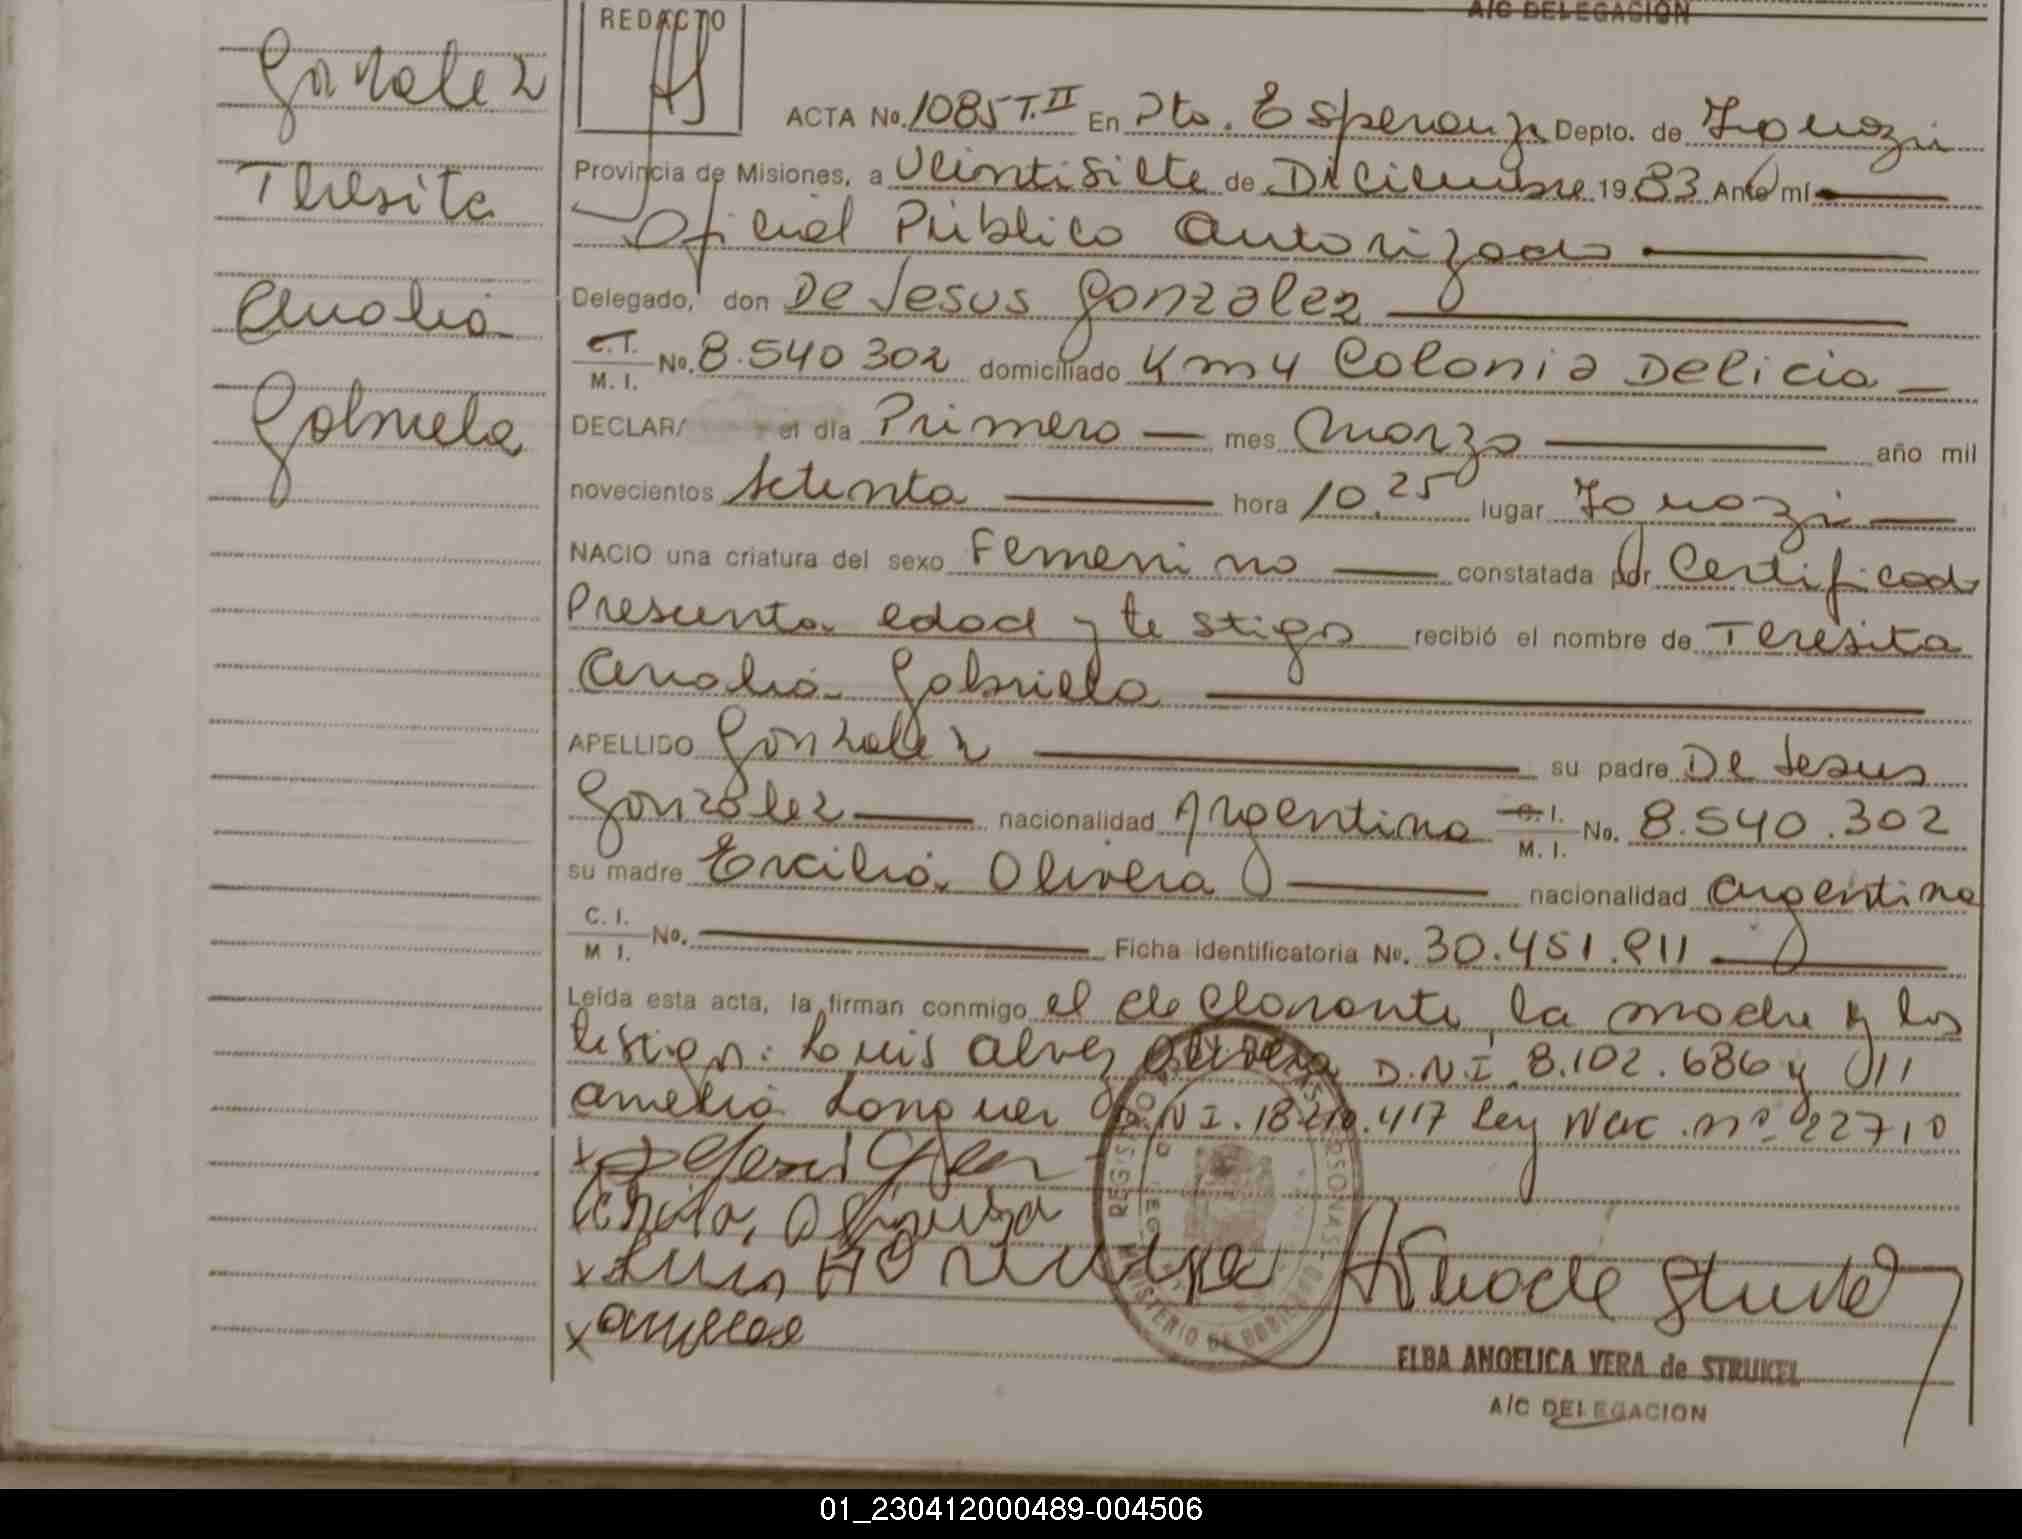 A/C DELEGACION
REDACTO
Gonzalez
Teresita
Analia
Gabriela
ACTA No. 1085 T. II En Pto. Esperanza Depto. de Iguazú
Provincia de Misiones, a Veintisiete de Diciembre 1983 Ante mí
Oficial Público Autorizado
Delegado, don De Jesus Gonzalez
C. I. M. I. No. 8.540 302 domiciliado Km 4 Colonia Delicia
DECLARA el día Primero mes Marzo año mil
novecientos setenta hora 10.25 lugar Iguazú
NACIO una criatura del sexo Femenino constatada por Certificado
Presunta edad y testigos recibió el nombre de Teresita
Analia Gabriela
APELLIDO Gonzalez su padre De Jesus
Gonzalez nacionalidad Argentina C. I. M. I. No. 8.540.302
su madre Ercilia Olivera nacionalidad argentina
C. I. M I. No. Ficha identificatoria No. 30.451.911
Leída esta acta, la firman conmigo el declarante, la madre y los
testigos: Luis Alvez D.N.I. 8.102.686 y
Amelia D.N I. 18.210.417 Ley Nac. nº 22710
REGIS PERSONAS
MINISTERIO DE GOBIERNO
ELBA ANGELICA VERA de STRUKEL
A/C DELEGACION
01_230412000489-004506